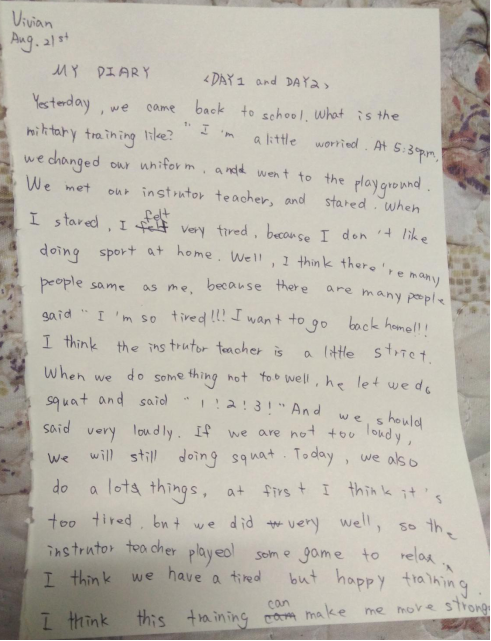 Vivian
Aug. 21st
MY DIARY <DAY1 and DAY2>
Yesterday, we came back to school. What is the
military training like? "I'm a little worried. At 5:30pm,
we changed our uniform. and went to the playground.
We met our instrutor teacher, and stared. When
I stared, I felt very tired, because I don't like
doing sport at home. Well, I think there're many
people same as me, because there are many people
said "I'm so tired!!! I want to go back home!!!
I think the instrutor teacher is a little strict.
When we do something not too well, he let we do
squat and said "1! 2! 3!" And we should
said very loudly. If we are not too loudy,
we will still doing squat. Today, we also
do a lots things, at first I think it's
too tired. but we did very well, so the
instrutor teacher played some game to relax.
I think we have a tired but happy training.
I think this training can make me more strong